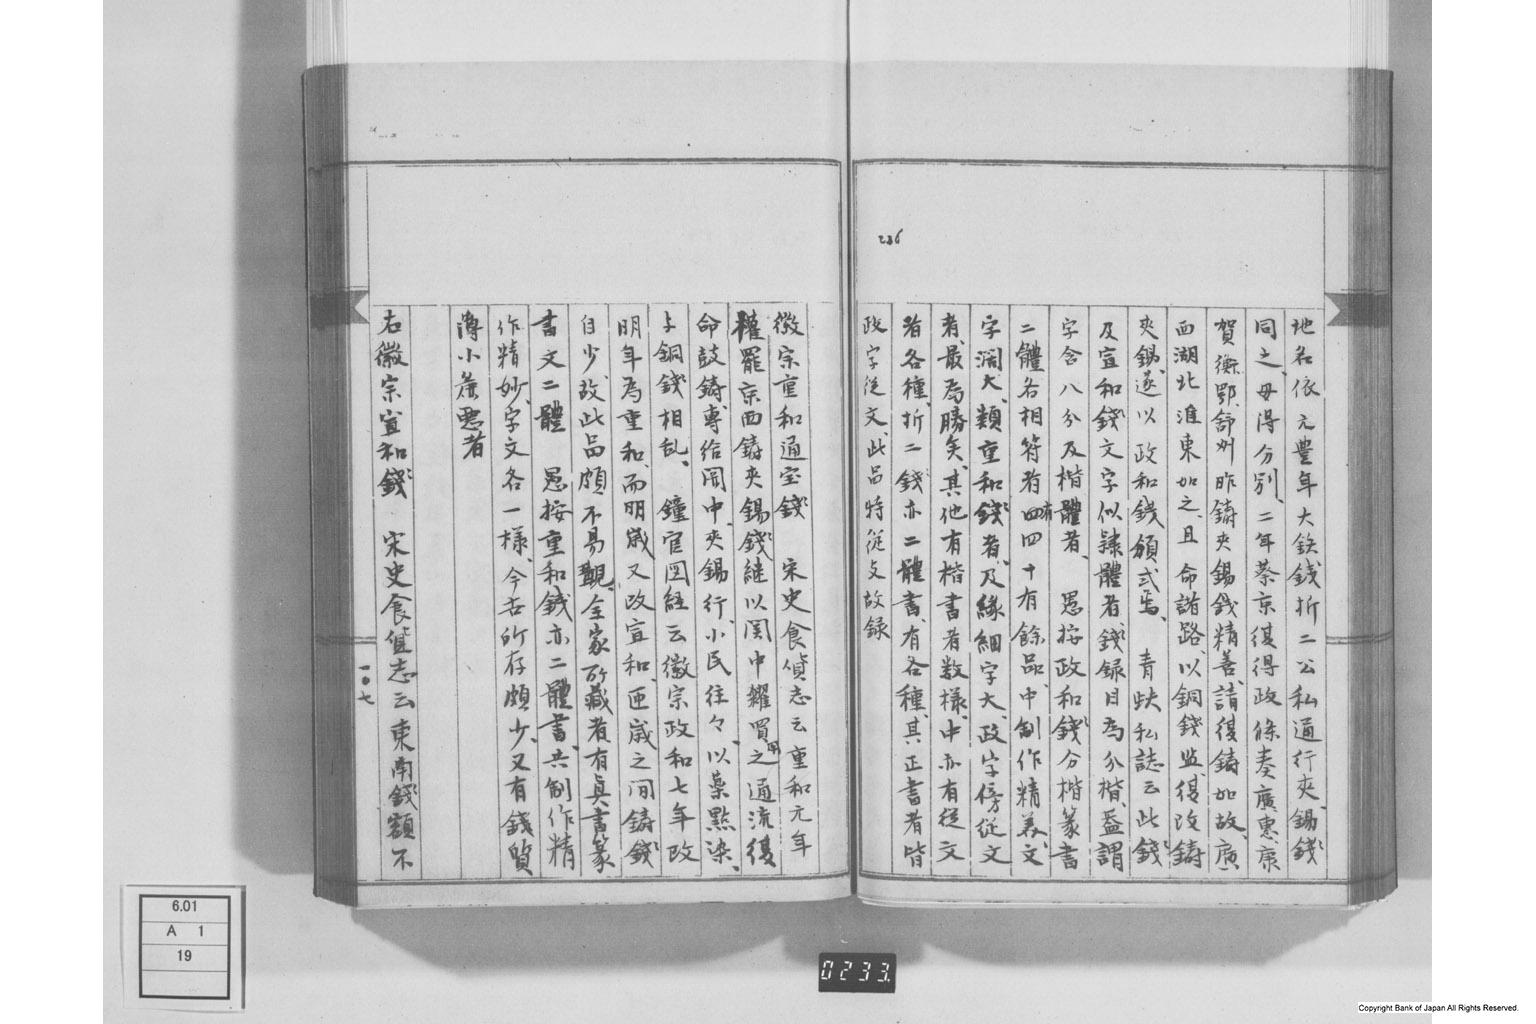 地名依元豊年大鉄錢折二公私通行夾錫錢
同之毋得分別、二年蔡京復得政條奏廣惠康
賀衡鄂舒州昨鑄夾錫錢精善、請復鑄如故、廣
西湖北淮東如之、且命諸路以銅錢監復改鑄
夾錫、遂以政和錢頒式焉、青蚨私誌云此錢
及宣和錢文字似隷體者、錢録目為八分楷、蓋謂
字含八分及楷體者、愚按政和錢分楷篆書
二體各相符者有四四十有餘品、中制作精美、文
字濶大、類重和錢者、及緣細字大、政字傍從文
者、最為勝矣、其他有楷書者数様、中亦有從文
者各種、折二錢亦二體書、有各種、其正書者皆
政字從文、此品特從攵故録
徽宗重和通宝錢 宋史食貨志云重和元年
權罷京西鑄夾錫錢継以関中糴買用之通流復
命鼓鑄專給関中、夾錫行、小民往々以薬點染、
与銅錢相乱、鐘官図経云徽宗政和七年改
明年為重和、而明歳又改宣和、匝歳之间鑄錢
自少、故此品頗不易覯、全家所藏者有真書篆
書文二體 愚按重和錢亦二體書、共制作精
作精妙、字文各一様、今古所存頗少、又有錢質
薄小麁悪者
右徽宗宣和錢 宋史食貨志云東南錢額不
一〇七
226
6.01
A 1
19
0233.
Copyright Bank of Japan All Rights Reserved.